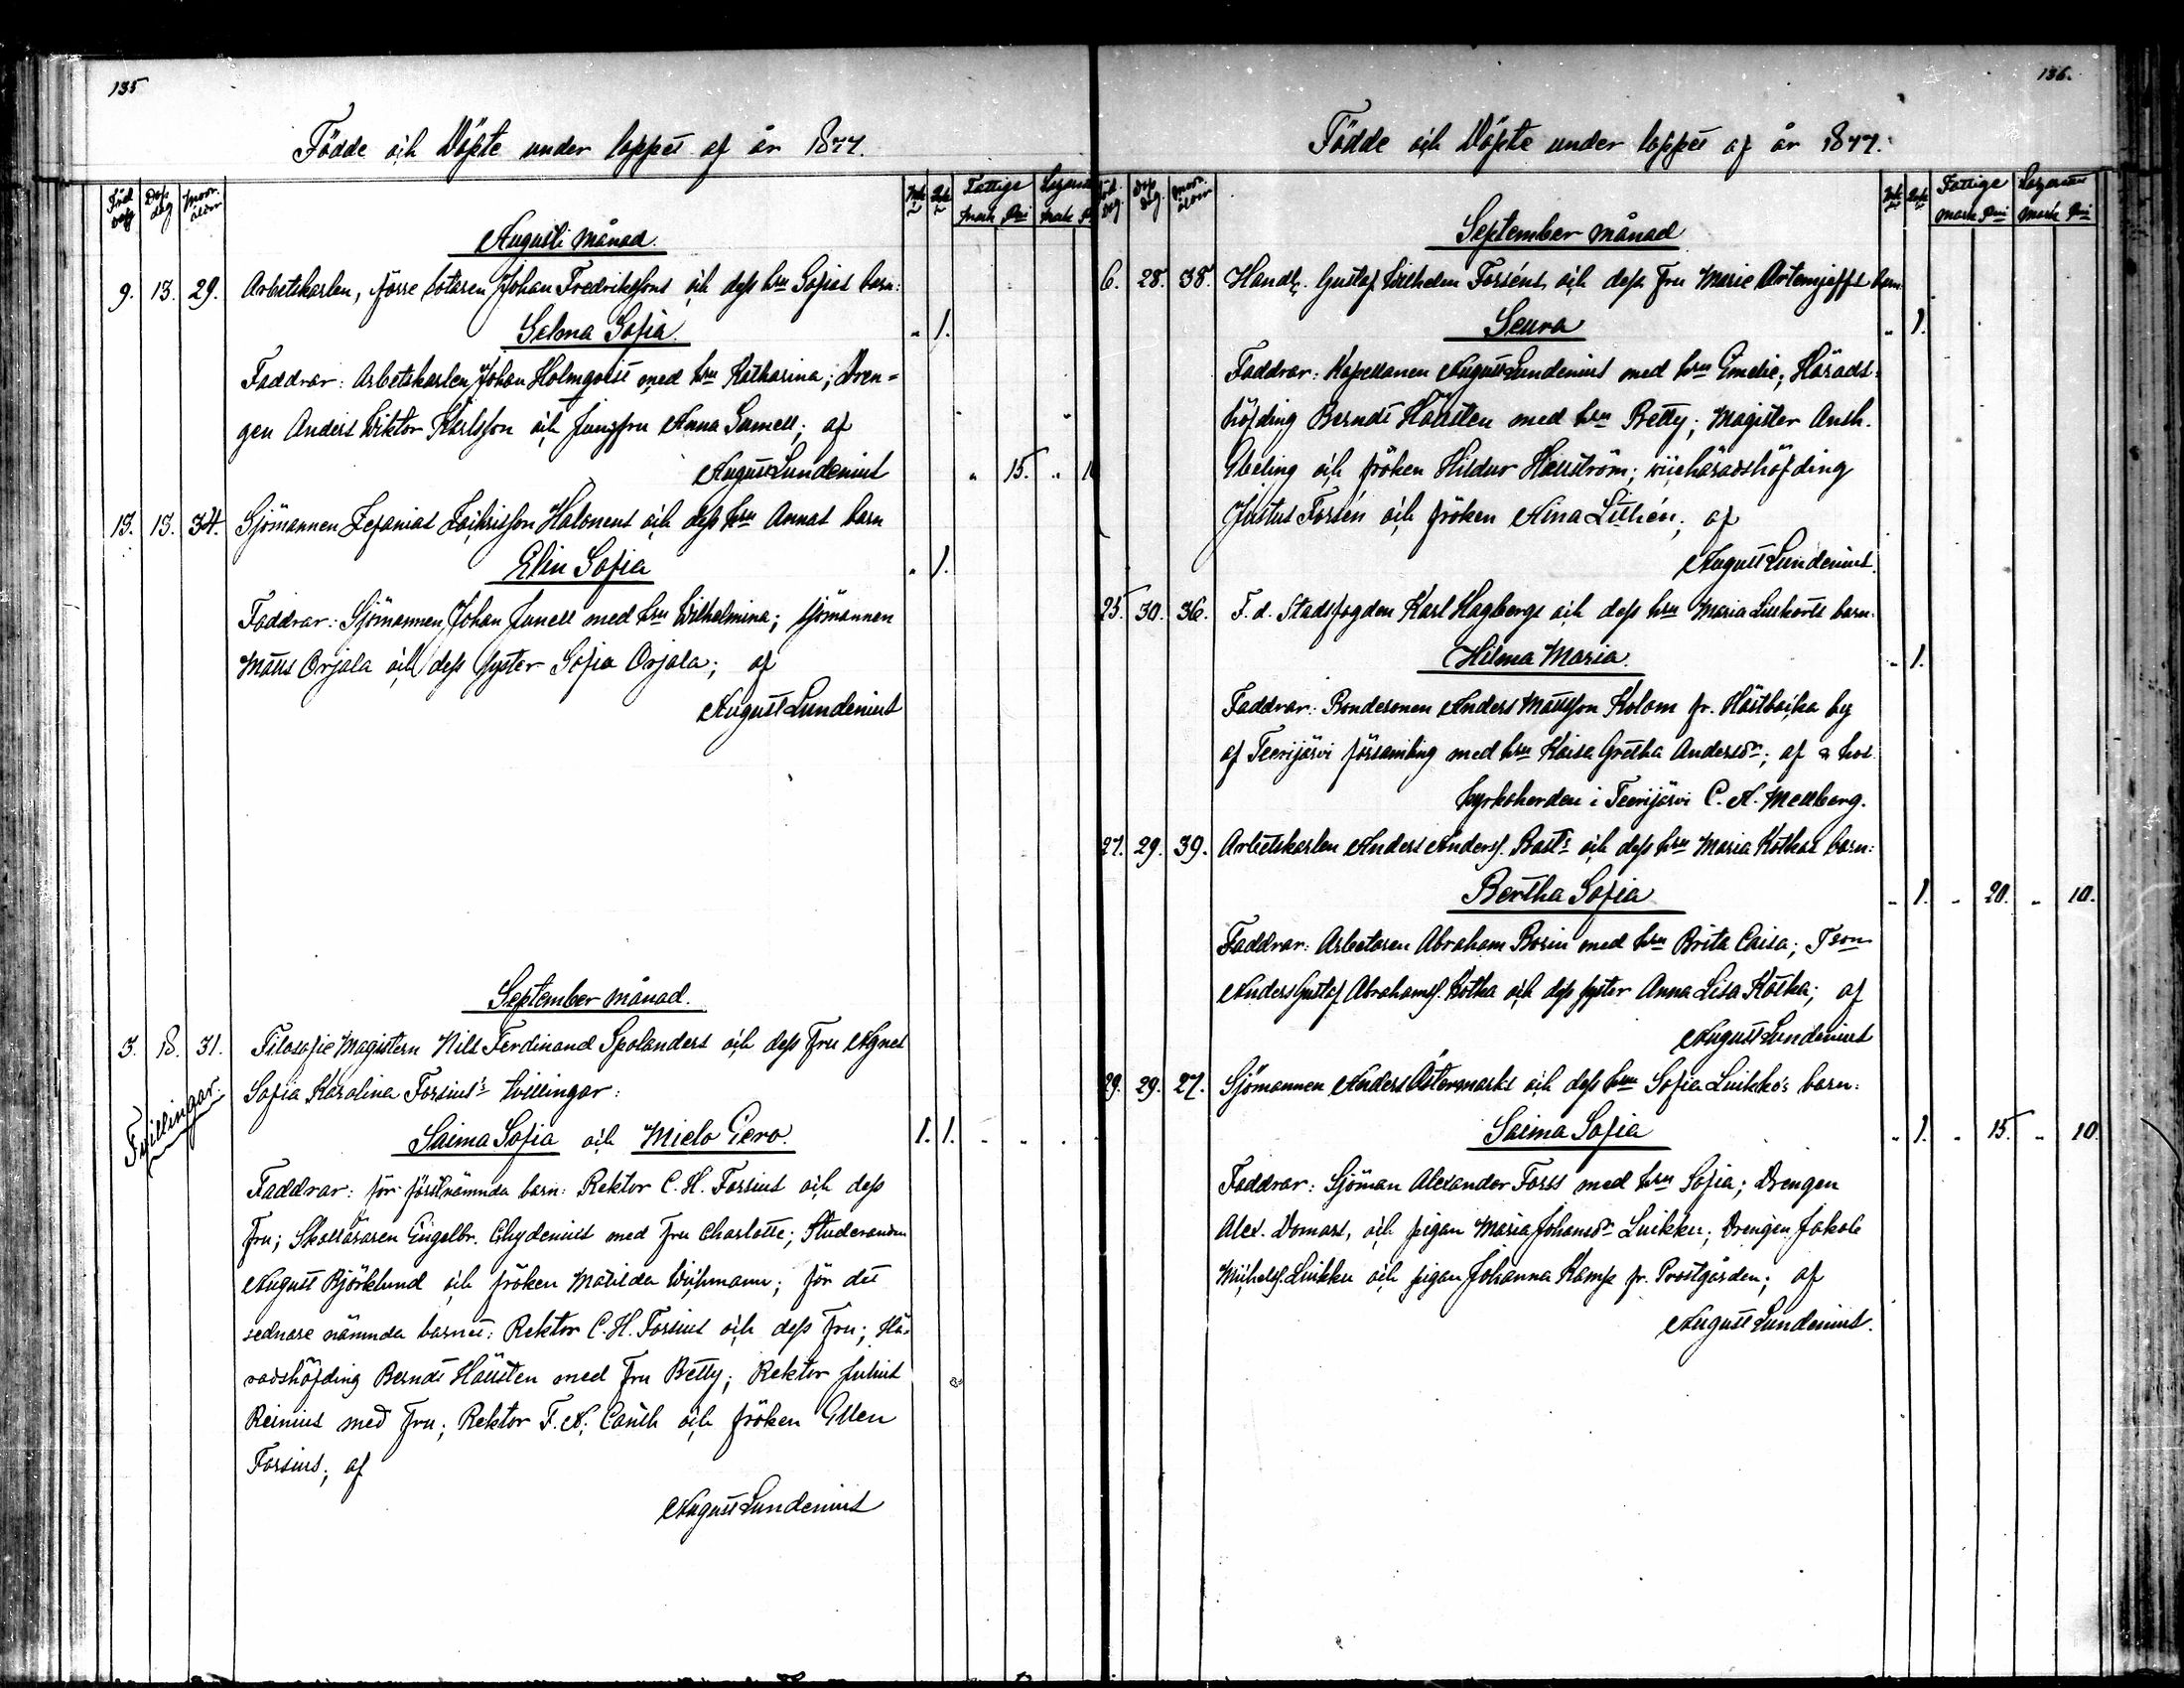 135
Födde och Döpte under loppet af år 1877.
Föd dag Dop dag Mor. ålder Fattige Lazarett
mark Pni mark
Augusti månad.
9. 13. 29. Arbetskarlen, förre lotsen Johan Fredrikssons och dess hru Sofias barn:
Selma Sofia. " 1.
Faddrar: Arbetskarlen Johan Holmqvist med hru Katharina; Dren-
gen Anders Wiktor Karlsson och Jungfru Anna Samell; af
August Lundenius " 15. " 10
13. 13. 34. Sjömannen Zefanias Zachrisson Halonens och dess hru Annas barn
Elin Sofia " 1.
Faddrar: Sjömannen Johan Junell med hru Wilhelmina; sjömannen
Matts Orjala och dess syster Sofia Orjala; af
August Lundenius
September månad.
3. 18. 31. Filosofie Magistern Nils Ferdinand Spolanders och dess Fru Agnes
Sofia Karolina Forsius's tvillingar:
Tvillingar.
Saima Sofia och Mielo Eero. 1. 1. " " "
Faddrar: för förstnämnda barn: Rektor C. H. Forsius och dess
Fru; Skolläraren Engelbr. Chydenius med Fru Charlotte; Studeranden
August Björklund och fröken Matilda Wichmann; för det
sednare nämnda barnet: Rektor C. H. Forsius och dess Fru; Hä-
radshöfding Berndt Hällsten med Fru Betty; Rektor Julius
Reinius med Fru; Rektor F. A. Canth och fröken Ellen
Forsius; af
August Lundenius
136.
Födde och Döpte under loppet af år 1877.
Föd. dag. Dop dag. Mor. ålder Fattige Lazarett
mark Pni mark Pni
September månad
6. 28. 38. Handl. Gustaf Wilhelm Forséns och dess Fru Marie Artemjeffs barn.
Seura " 1.
Faddrar: Kapellanen August Lundenius med hru Emelie; Härads-
höfding Berndt Hällsten med hru Betty; Magister Ansh.
Ebeling och fröken Hildur Hällström; vicehäradshöfding
Justus Forsén och fröken Aina Lithén; af
August Lundenius.
25. 30. 36. F. d. Stadsfogden Karl Hagbergs och dess hru Maria barn.
Hilma Maria. " 1.
Faddrar: Bondesonen Anders Mattsson Kolam fr. Hästbacka by
af Teerijärvi församling med hru Kaisa Gretha Andersdr; af & hos
kyrkoherden i Teerijärvi C. A. Mellberg.
27. 29. 39. Arbetskarlen Anders Anderss. Bast's och dess hru Maria Kotkas barn:
Bertha Sofia " 1. " 20. " 10.
Faddrar: Arbetaren Abraham Rosin med hru Brita Caisa; Tson
Anders Gustaf Abrahamss. Kotka och dess syster Anna Lisa Kotka; af
August Lundenius
29. 29. 27. Sjömannen Anders Östermarks och dess hru Sofia Luikko's barn:
Saima Sofia " 1. " 15. " 10.
Faddrar: Sjöman Alexander Forss med hru Sofia; Drengen
Alex. Domars, och pigan Maria Johansdr Luikku; Drengen Jakob
Michelss. Luikku och pigan Johanna Kamp fr. Prostgården; af
August Lundenius.